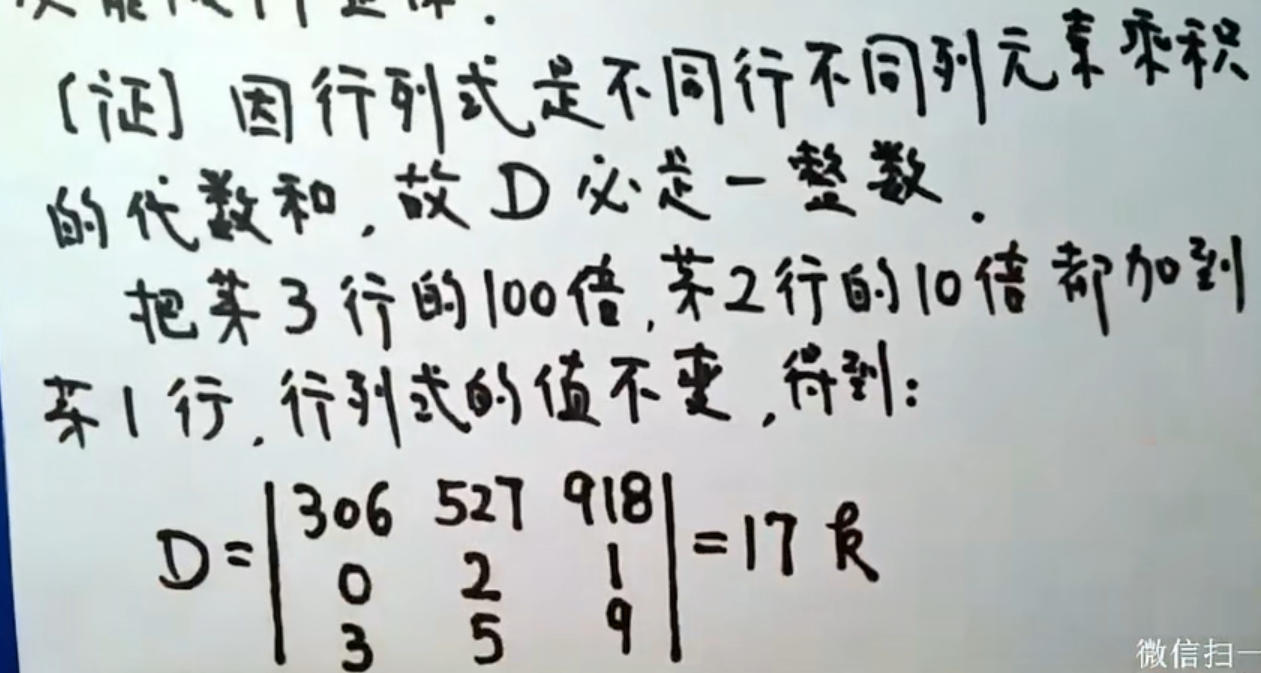 [证] 因行列式是不同行不同列元素乘积
的代数和,故D必是一整数.
把第3行的100倍,第2行的10倍都加到
第1行,行列式的值不变,得到:
D=|306 527 918|=17k
0 2 1
3 5 9
微信扫一